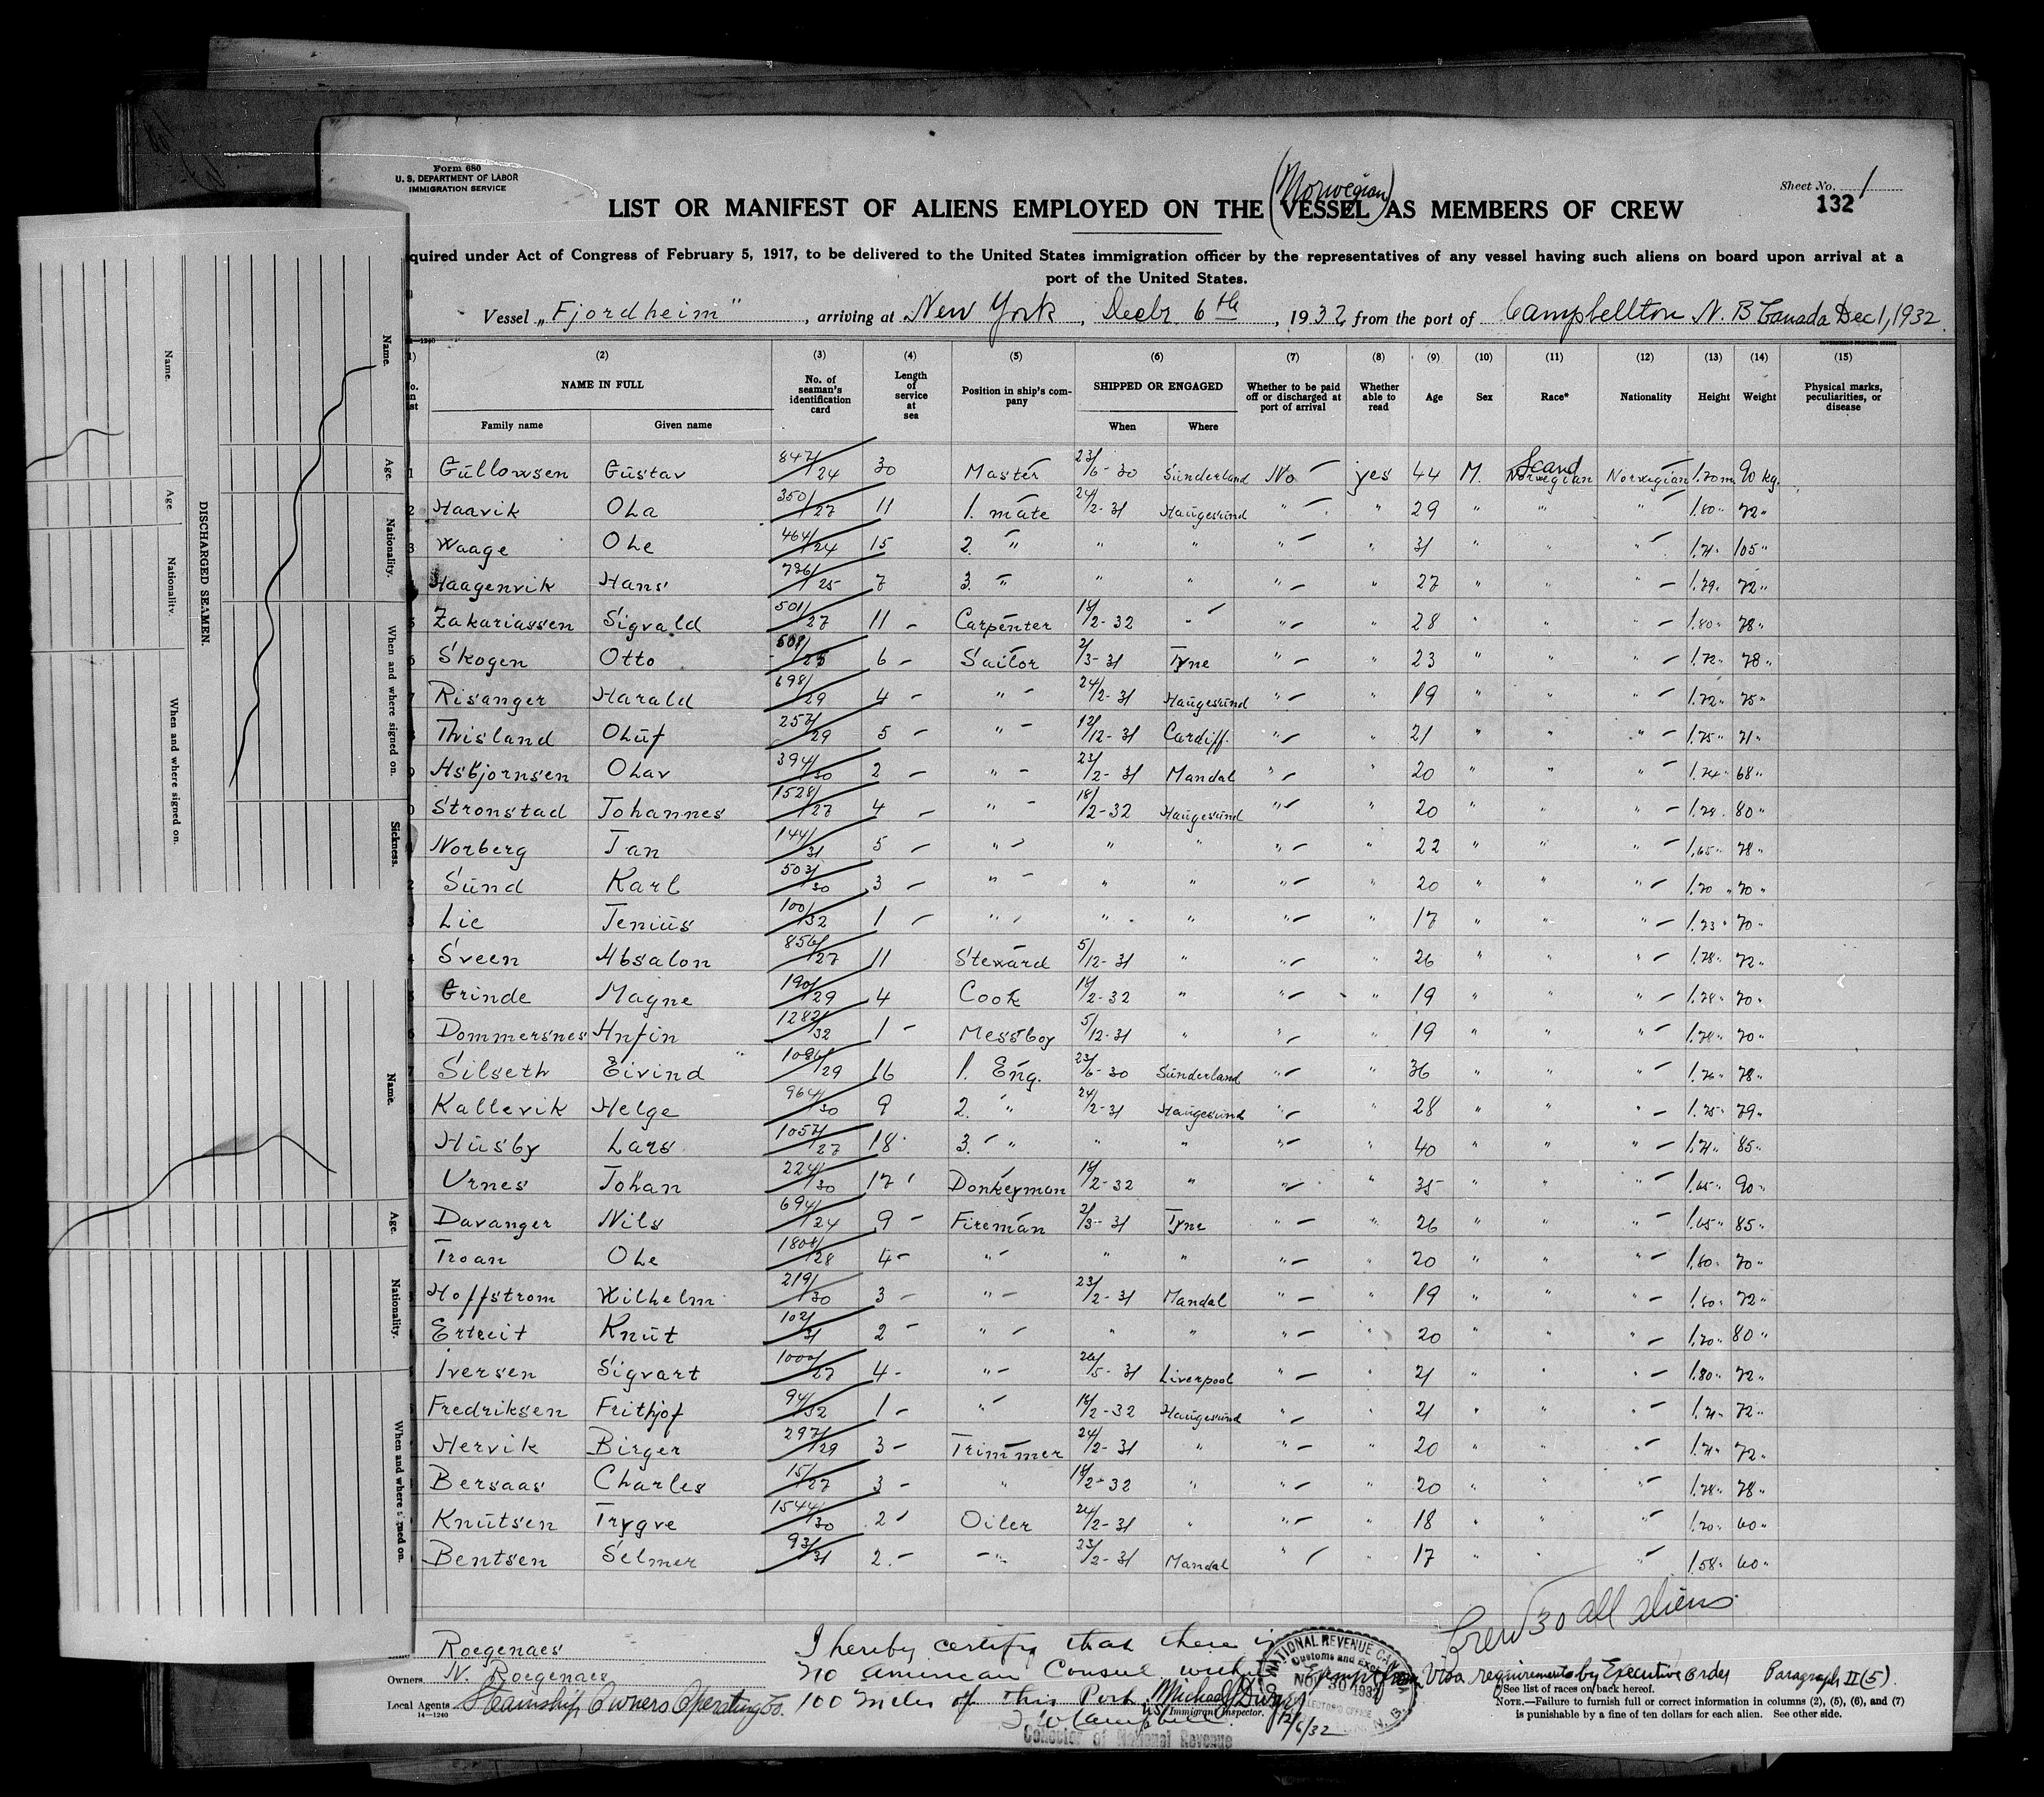 Form 680
U. S. DEPARTMENT OF LABOR
IMMIGRATION SERVICE
Sheet No. 1
132
(Norwegian)
LIST OR MANIFEST OF ALIENS EMPLOYED ON THE VESSEL AS MEMBERS OF CREW
quired under Act of Congress of February 5, 1917, to be delivered to the United States immigration officer by the representatives of any vessel having such aliens on board upon arrival at a
port of the United States.
Vessel „Fjordheim", arriving at New York, Decbr 6th, 1932, from the port of Campbellton N. B Canada Dec 1, 1932.
(1) (2) (3) (4) (5) (6) (7) (8) (9) (10) (11) (12) (13) (14) (15)
NAME IN FULL
Family name Given name
No. of seaman's identification card
Length of service at sea
Position in ship's company
SHIPPED OR ENGAGED
When Where
Whether to be paid off or discharged at port of arrival
Whether able to read
Age Sex Race* Nationality Height Weight
Physical marks, peculiarities, or disease
1 Gullowsen Gustav 847/24 30 Master 23/6-30 Sunderland No yes 44 M. Scand Norwegian Norwegian 1.70m 90 kg.
2 Haavik Ola 350/27 11 1. mate 24/2-31 Haugesund " " 29 " " " 1.80" 72"
3 Waage Ole 464/24 15 2. " " " " " 31 " " " 1.71" 105"
Haagenvik Hans 736/25 7 3. " " " " " 27 " " " 1.79" 72"
5 Zakariassen Sigvald 501/27 11 Carpenter 18/2-32 " " " 28 " " " 1.80" 78"
6 Skogen Otto 6 Sailor 2/3-31 Tyne " " 23 " " " 1.72" 78"
7 Risanger Harald 698/29 4 " 24/2-31 Haugesund " " 19 " " " 1.72" 75"
Thisland Oluf 257/29 5 " 12/12-31 Cardiff " " 21 " " " 1.75" 71"
9 Asbjornsen Olav 394/30 2 " 23/2-31 Mandal " " 20 " " " 1.74" 68"
Stronstad Johannes 1528/27 4 " 18/2-32 Haugesund " " 20 " " " 1.78" 80"
Norberg Jan 144/31 5 " " " " " 22 " " " 1.65" 78"
Sund Karl 503/30 3 " " " " " 20 " " " 1.70" 70"
Lie Jenius 100/32 1 " " " " " 17 " " " 1.73" 70"
Sveen Absalon 856/27 11 Steward 5/12-31 " " " 26 " " " 1.78" 72"
Grinde Magne 190/29 4 Cook 18/2-32 " " " 19 " " " 1.78" 70"
Dommersnes Anfin 1282/32 1 Messboy 5/12-31 " " " 19 " " " 1.78" 70"
Silseth Eivind 1086/29 16 1. Eng. 23/6-30 Sunderland " " 36 " " " 1.76" 78"
Kallevik Helge 964/30 9 2. " 24/2-31 Haugesund " " 28 " " " 1.75" 79"
Husby Lars 1057/27 18 3. " " " " " 40 " " " 1.71" 85"
Urnes Johan 224/30 17 Donkeyman 18/2-32 " " " 35 " " " 1.65" 90"
Davanger Nils 694/24 9 Fireman 2/3-31 Tyne " " 26 " " " 1.65" 85"
Troan Ole 1808/28 4 " " " " " 20 " " " 1.80" 70"
Hoffstrom Wilhelm 219/30 3 " 23/2-31 Mandal " " 19 " " " 1.80" 72"
Erteeit Knut 102/31 2 " " " " " 20 " " " 1.70" 80"
Iversen Sigvart 1000/27 4 " 26/5-31 Liverpool " " 21 " " " 1.80" 72"
Fredriksen Frithjof 94/32 1 " 18/2-32 Haugesund " " 21 " " " 1.71" 72"
Hervik Birger 297/29 3 Trimmer 24/2-31 " " " 20 " " " 1.71" 72"
Bersaas Charles 15/27 3 " 18/2-32 " " " 20 " " " 1.78" 78"
Knutsen Trygve 1544/30 2 Oiler 24/2-31 " " " 18 " " " 1.70" 60"
Bentsen Selmer 93/31 2 " 23/2-31 Mandal " " 17 " " " 1.58" 60"
Crew 30 all aliens
Roegenaes
Owners N. Roegenaes
Local Agents Steamship Owners Operating Co.
14—1240
I hereby certify that there is
no American Consul within
100 miles of this Port
Collector of National Revenue
NATIONAL REVENUE CANADA
Customs and Excise
NOV 30 1932
COLLECTOR'S OFFICE
N. B.
Exempt from Visa requirements by Executive order Paragraph II (5)
Michael
US Immigrant Inspector.
12/6/32
*See list of races on back hereof.
NOTE.—Failure to furnish full or correct information in columns (2), (5), (6), and (7)
is punishable by a fine of ten dollars for each alien. See other side.
DISCHARGED SEAMEN.
Name. Age Nationality. When and where signed on.
Name. Age. Nationality. When and where signed on. Sickness.
Name. Age. Nationality. When and where signed on.